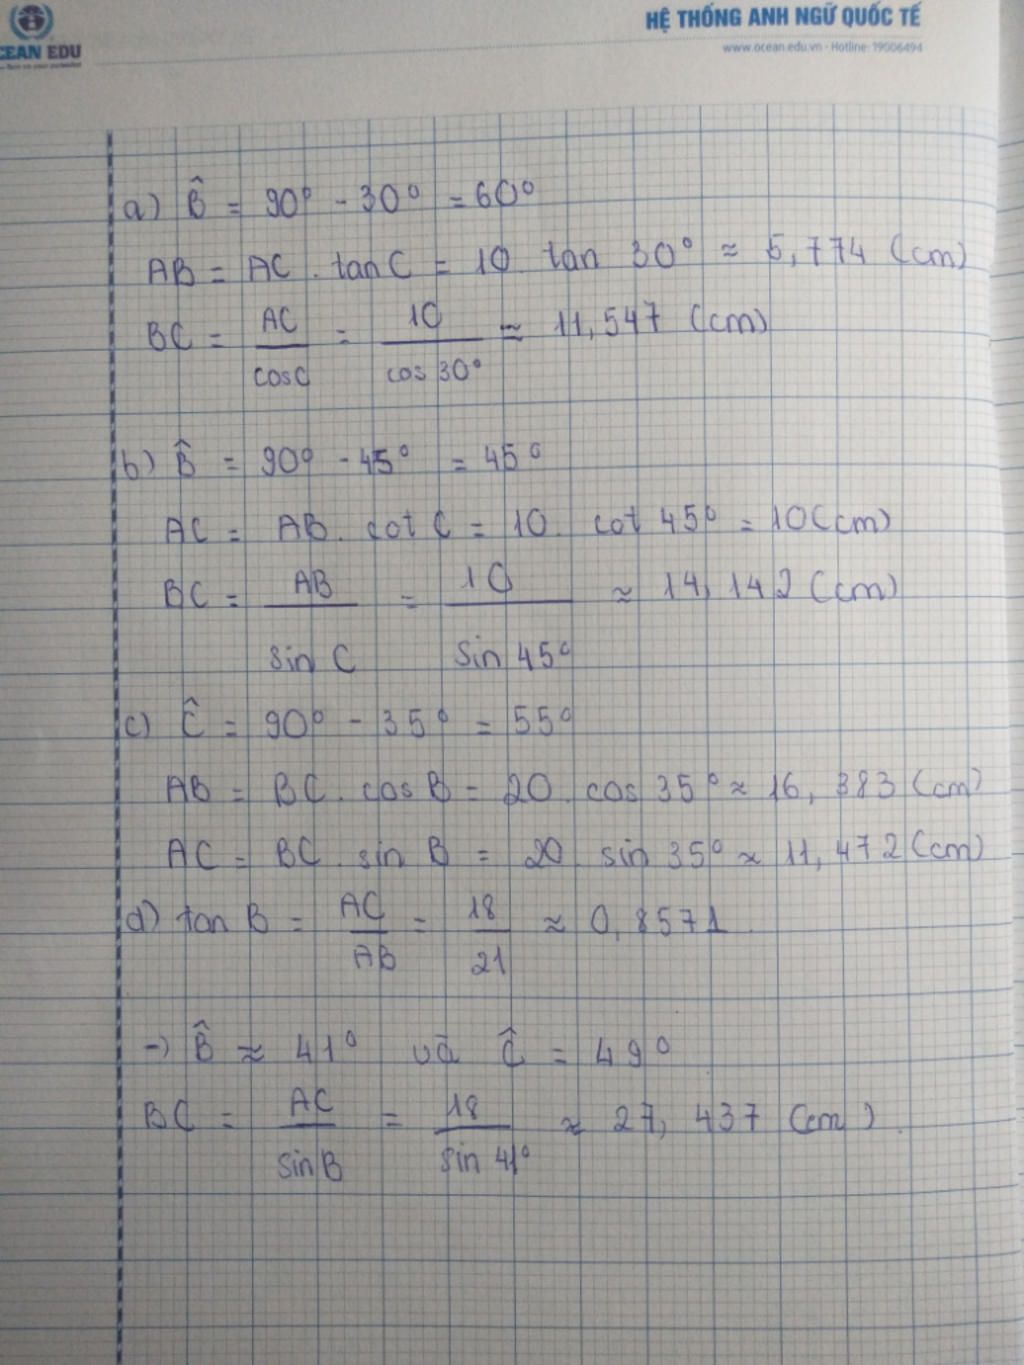 CEAN EDU
HỆ THỐNG ANH NGỮ QUỐC TẾ
www.ocean.edu.vn - Hotline: 19006494
a) B̂ = 90° - 30° = 60°
AB = AC . tan C = 10 . tan 30° ≈ 5,774 (cm)
BC = AC / cos C = 10 / cos 30° ≈ 11,547 (cm)
b) B̂ = 90° - 45° = 45°
AC = AB . cot C = 10 . cot 45° = 10 (cm)
BC = AB / sin C = 10 / sin 45° ≈ 14,142 (cm)
c) Ĉ = 90° - 35° = 55°
AB = BC . cos B = 20 . cos 35° ≈ 16,383 (cm)
AC = BC . sin B = 20 . sin 35° ≈ 11,472 (cm)
d) tan B = AC / AB = 18 / 21 ≈ 0,8571
→ B̂ ≈ 41° và Ĉ = 49°
BC = AC / sin B = 18 / sin 41° ≈ 27,437 (cm)